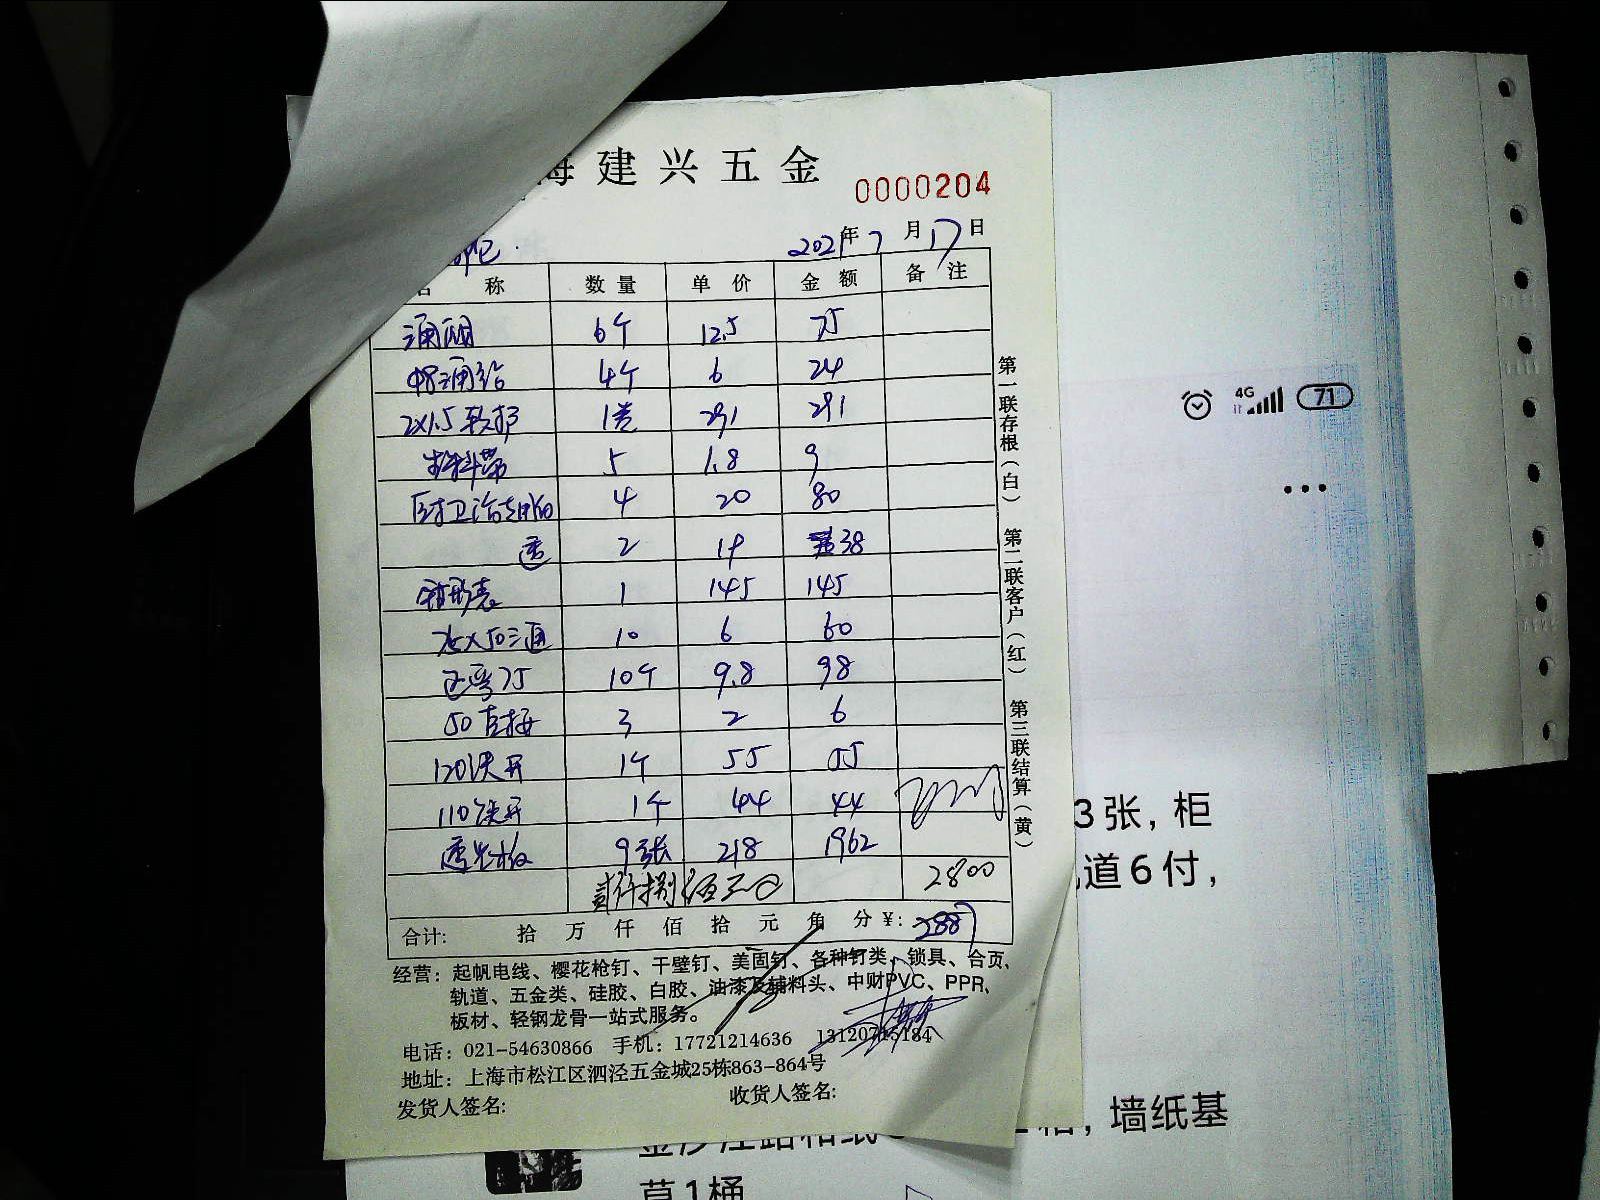 海建兴五金
0000204
2021年7月17日
名 称 数量 单价 金额 备注
6个 12.5 75
4个 6 24
2X1.5 1卷 291 291
生料带 5 1.8 9
4 20 80
2 19 38
1 145 145
75X50三通 10 6 60
75 10个 9.8 98
50直接 3 2 6
120 1个 55 55
110 1个 44 44
透光板 9张 218 1962
贰仟捌佰元 2800
合计: 拾 万 仟 佰 拾 元 角 分 ¥: 2887
经营:起帆电线、樱花枪钉、干壁钉、美固钉、各种钉类、锁具、合页、
轨道、五金类、硅胶、白胶、油漆及辅料头、中财PVC、PPR、
板材、轻钢龙骨一站式服务。
电话:021-54630866 手机:17721214636 13120715184
地址:上海市松江区泗泾五金城25栋863-864号
发货人签名: 收货人签名:
第一联存根(白) 第二联客户(红) 第三联结算(黄)
4G 71
3张,柜
道6付,
,墙纸基
1桶